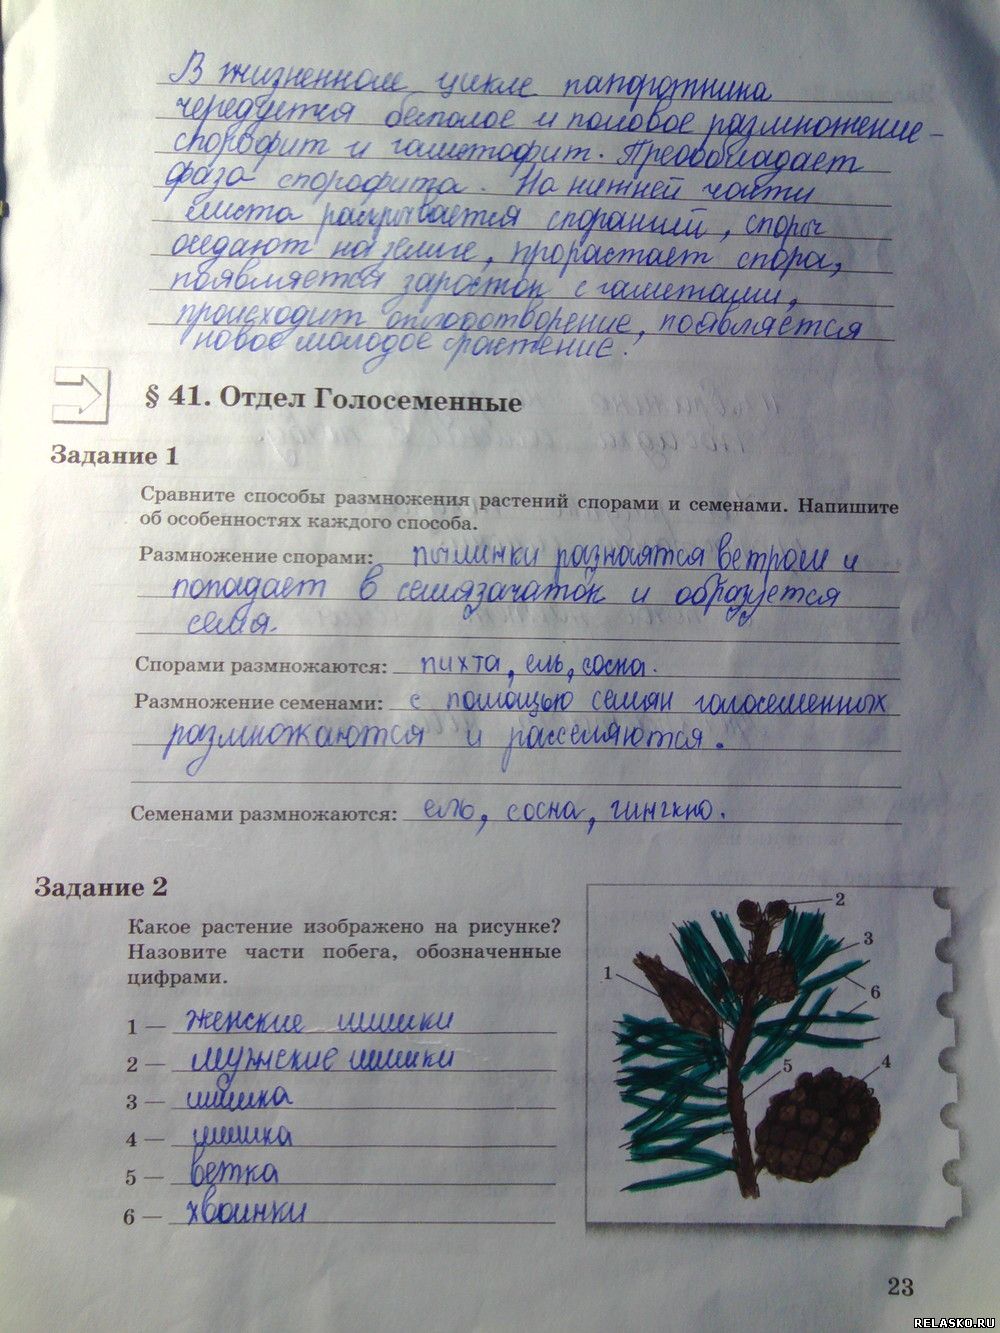 В жизненном цикле папоротника
чередуется бесполое и половое размножение -
спорофит и гаметофит. Преобладает
фаза спорофита. На нижней части
листа раскрывается спорангий, споры
оседают на земле, прорастает спора,
появляется заросток с гаметами,
происходит оплодотворение, появляется
новое молодое растение.
§ 41. Отдел Голосеменные
Задание 1
Сравните способы размножения растений спорами и семенами. Напишите
об особенностях каждого способа.
Размножение спорами: пылинки разносятся ветром и
попадает в семязачаток и образуется
семя.
Спорами размножаются: пихта, ель, сосна.
Размножение семенами: с помощью семян голосеменных
размножаются и расселяются.
Семенами размножаются: ель, сосна, гингкно.
Задание 2
Какое растение изображено на рисунке?
Назовите части побега, обозначенные
цифрами.
1 — женские шишки
2 — мужские шишки
3 — шишка
4 — шишка
5 — ветка
6 — хвоинки
2
3
1
6
5
4
23
RELASKO.RU